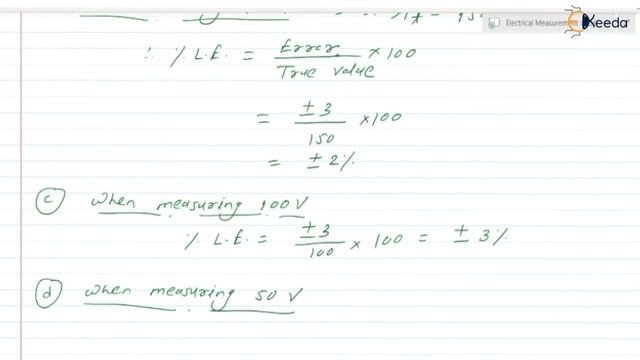 Electrical Measurement
Ekeeda
∴ % L.E. = Error/True value × 100
= ± 3/150 × 100
= ± 2%
(c) When measuring 100V
% L.E. = ± 3/100 × 100 = ± 3%
(d) When measuring 50 V